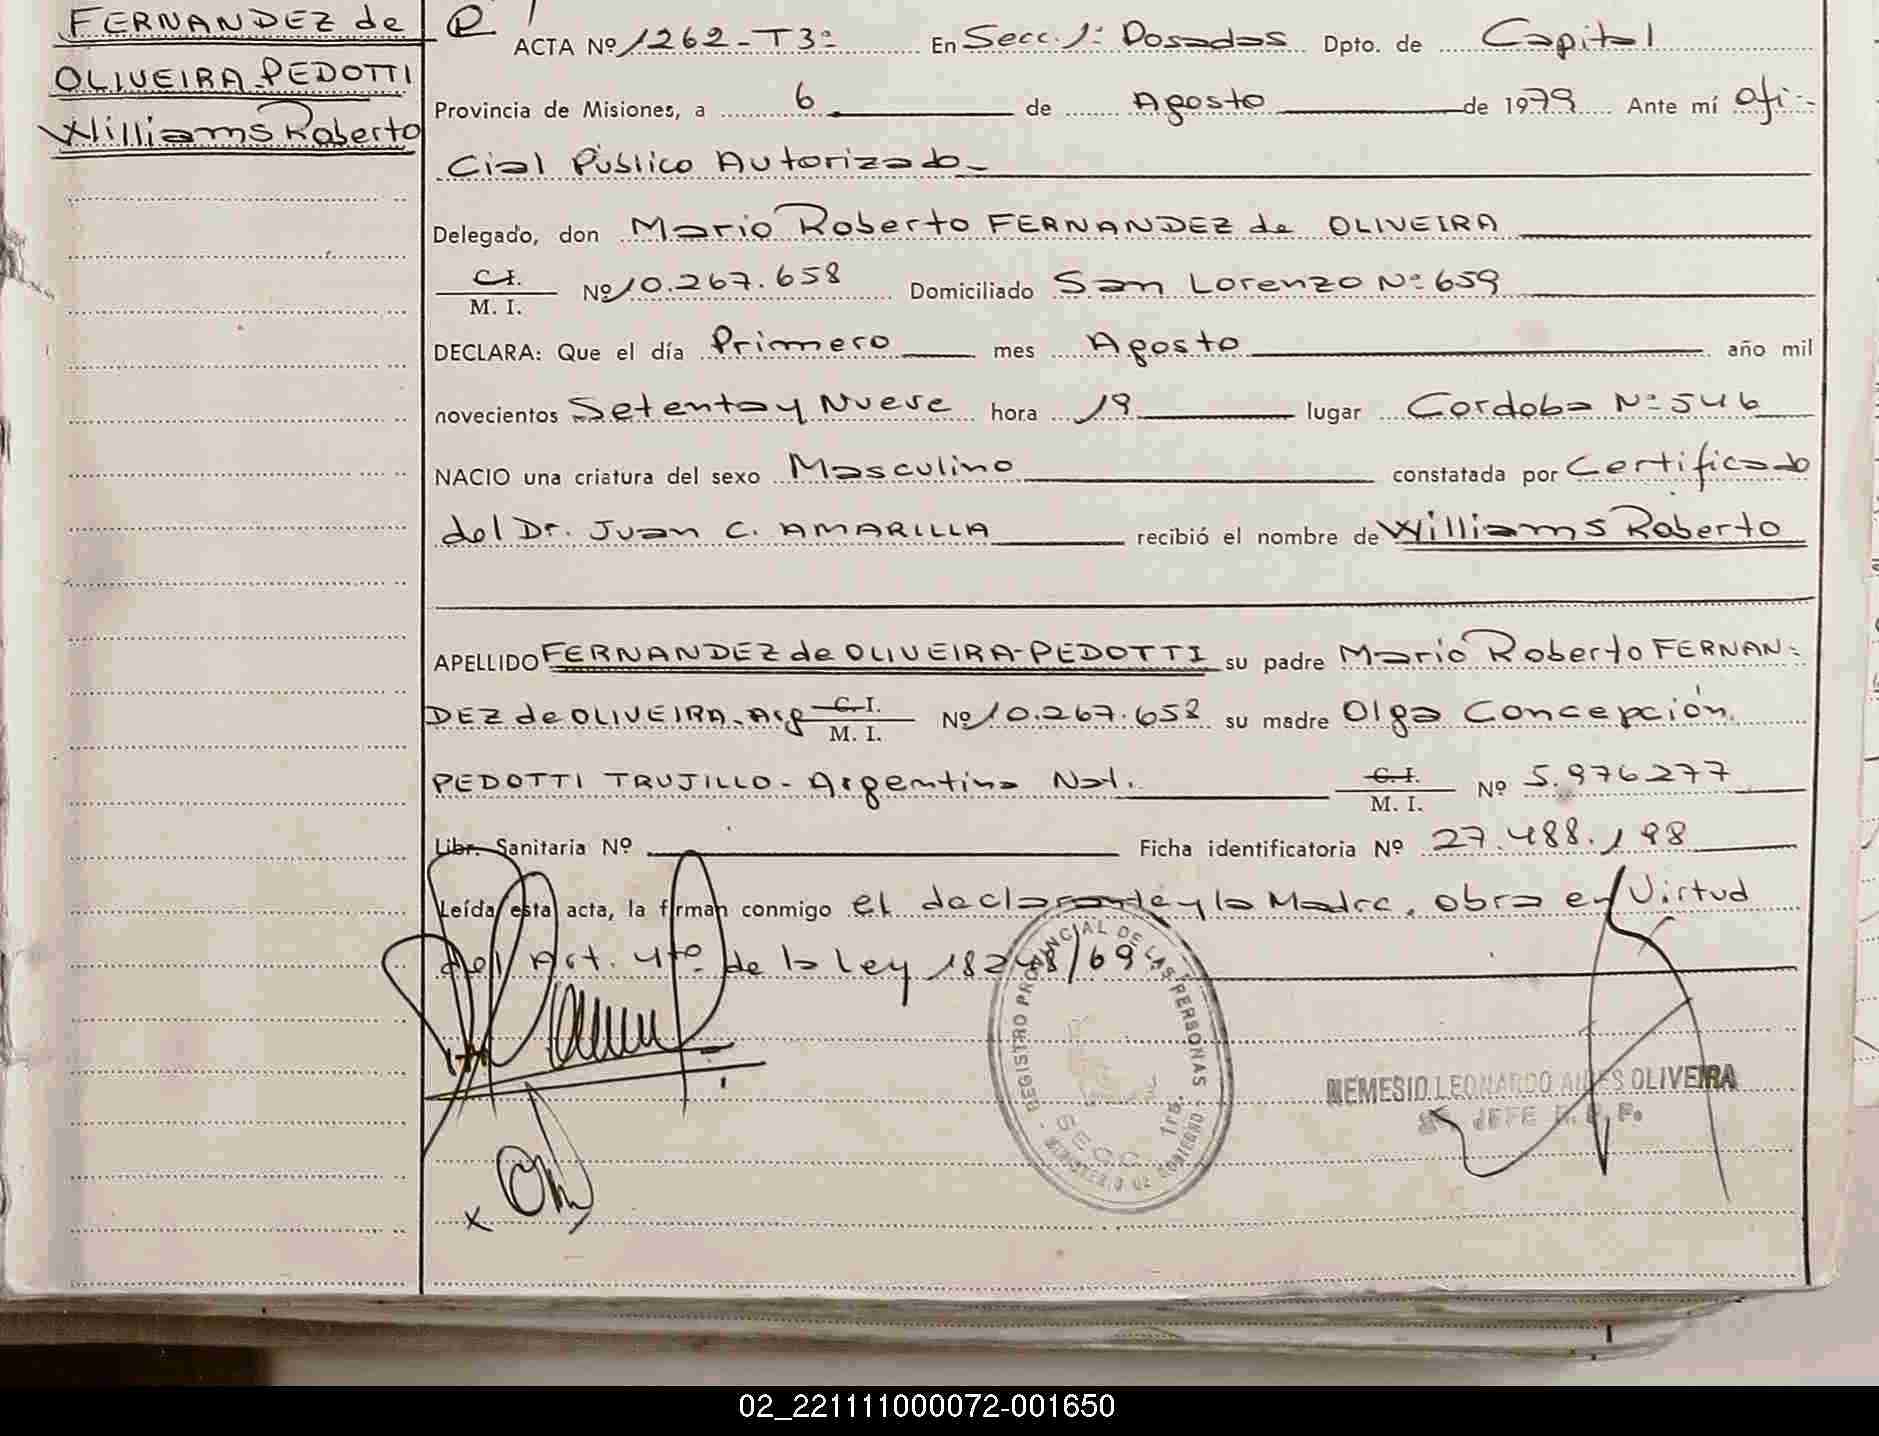 FERNANDEZ de
OLIVEIRA-PEDOTTI
Williams Roberto
ACTA Nº 1262-T3º En Secc. 1º Posadas Dpto. de Capital
Provincia de Misiones, a 6 de Agosto de 1979 Ante mí Ofi-
cial Público Autorizado
Delegado, don Mario Roberto FERNANDEZ de OLIVEIRA
C.I.
M. I. Nº 10.267.658 Domiciliado San Lorenzo Nº 659
DECLARA: Que el día Primero mes Agosto año mil
novecientos Setenta y Nueve hora 19 lugar Cordoba Nº 546
NACIO una criatura del sexo Masculino constatada por Certificado
del Dr. Juan C. AMARILLA recibió el nombre de Williams Roberto
APELLIDO FERNANDEZ de OLIVEIRA-PEDOTTI su padre Mario Roberto FERNAN-
DEZ de OLIVEIRA-Arg C.I.
M. I. Nº 10.267.658 su madre Olga Concepción
PEDOTTI TRUJILLO- Argentina Nat. C.I.
M. I. Nº 5.976277
Libr. Sanitaria Nº Ficha identificatoria Nº 27.488.198
Leída esta acta, la firman conmigo el declarante y la Madre. obra en Virtud
del Art. 4to de la ley 18248/69
REGISTRO PROVINCIAL DE LAS PERSONAS
MINISTERIO DE GOBIERNO
SECC. 1ra.
NEMESIO LEONARDO AIRES OLIVEIRA
JEFE
x
02_221111000072-001650